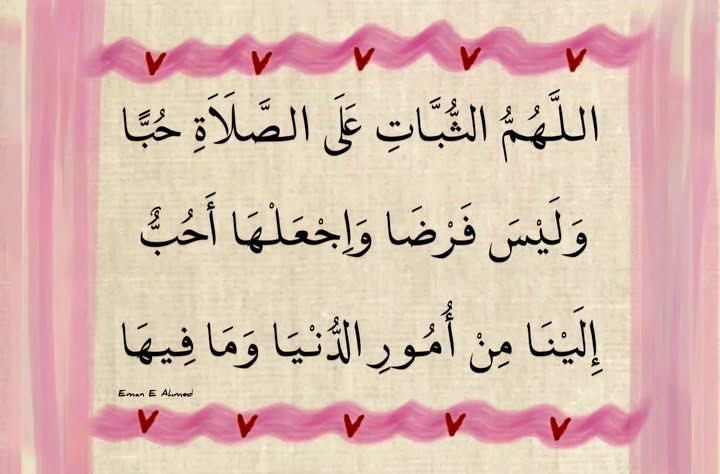 اللَّهُمُّ الثُّبَّاتِ عَلَى الصَّلَاَةِ حُبًّا
وَلَيْسَ فَرْضَا وَاِجْعَلْهَا أَحُبٌّ
إِلَيْنَا مِنْ أُمُورِ الدُّنْيَا وَمَا فِيهَا
Eman E Ahmed